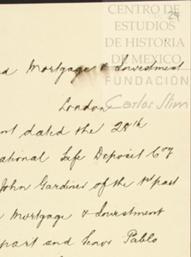 CENTRO DE
ESTUDIOS
DE HISTORIA
DE MEXICO
FUNDACIÓN
Carlos Slim
29
nd Mortgage & Investment
London
nt dated the 28th
ational Safe Deposit Coy
John Gardiner of the 1st part
e Mortgage & Investment
part and Senor Pablo